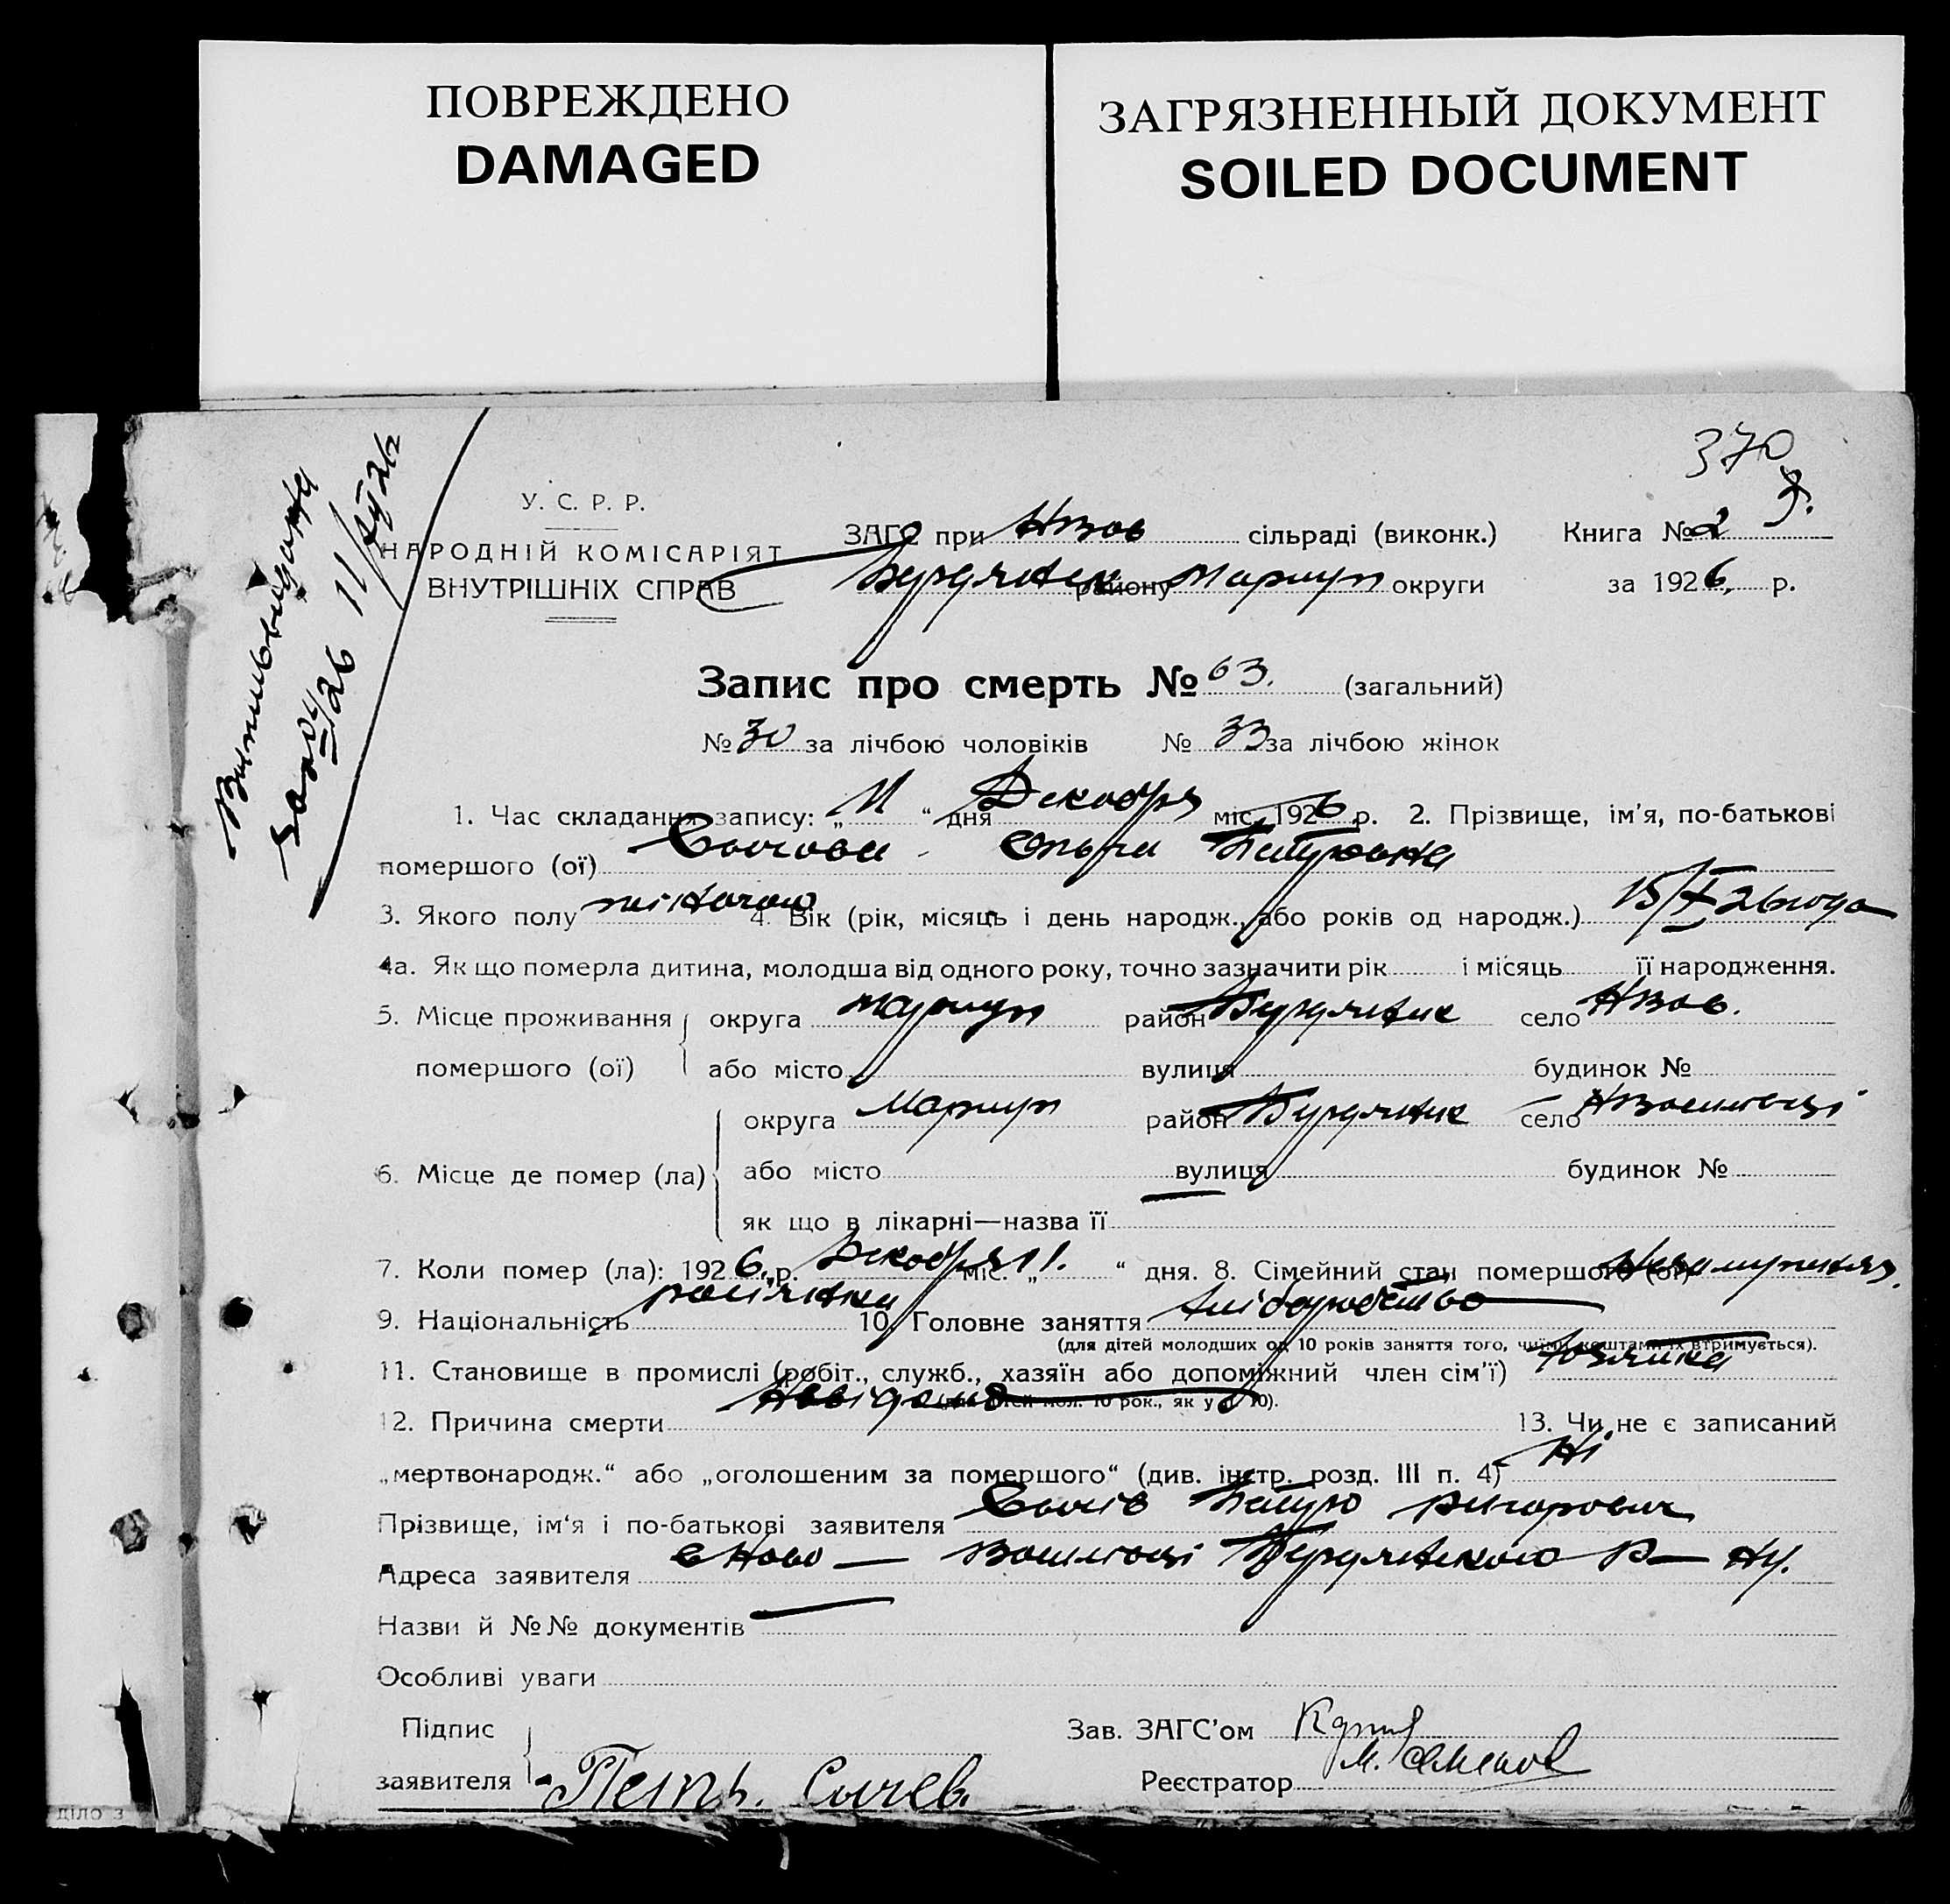 ПОВРЕЖДЕНО
DAMAGED
ЗАГРЯЗНЕННЫЙ ДОКУМЕНТ
SOILED DOCUMENT
370
У. С. Р. Р.
НАРОДНІЙ КОМІСАРІЯТ
ВНУТРІШНІХ СПРАВ
ЗАГС при Нвов сільраді (виконк.) Книга № 2
Бердянск району Мариуп округи за 1926, р.
Запис про смерть № 63. (загальний)
№ 30 за лічбою чоловіків № 33 за лічбою жінок
1. Час складання запису: „ 11 “ дня Декабря міс. 1926 р. 2. Прізвище, ім'я, по-батькові
помершого (ої) Сычова Ольга Петровна
3. Якого полу жіночого 4. Вік (рік, місяць і день народж., або років од народж.) 15/X 26 года
4а. Як що померла дитина, молодша від одного року, точно зазначити рік і місяць її народження.
5. Місце проживання округа Мариуп район Бердянск село Нвов.
помершого (ої) або місто вулиця будинок №
округа Мариуп район Бердянск село Нвасилівці
6. Місце де помер (ла) або місто вулиця будинок №
як що в лікарні—назва її
7. Коли помер (ла): 1926 р. Декабря міс. „ 11. “ дня. 8. Сімейний стан помершого (ої)
9. Національність росіянка 10. Головне заняття хліборобство
(для дітей молодших од 10 років заняття того, чиїми коштами їх втримується).
11. Становище в промислі (робіт., служб., хазяїн або допоміжний член сім'ї) хозяйка
(для дітей мол. 10 рок., як у п. 10).
12. Причина смерти Невідомо 13. Чи не є записаний
„мертвонародж.“ або „оголошеним за помершого“ (див. інстр. розд. III п. 4) Ні
Прізвище, ім'я і по-батькові заявителя Сычів Петро Григорович
Адреса заявителя с Ново — Василівці Бердянського Р—ну.
Назви й №№ документів
Особливі уваги
Підпис
заявителя Петръ. Сычев.
Зав. ЗАГС'ом
Реєстратор